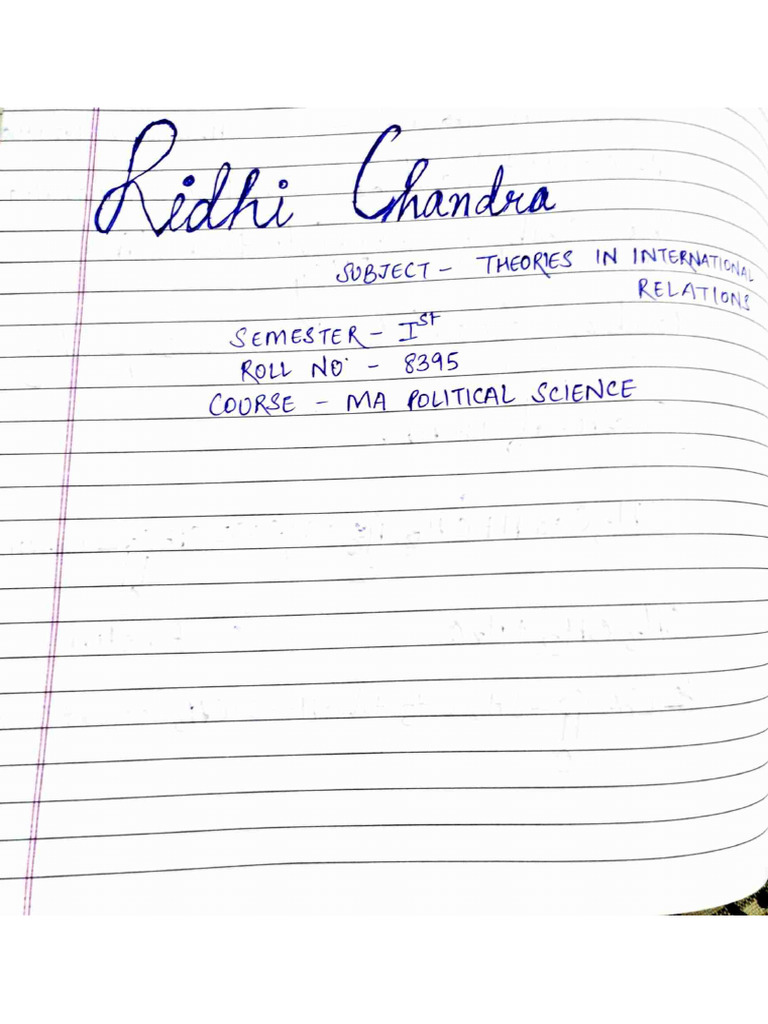 Ridhi Chandra
SUBJECT - THEORIES IN INTERNATIONAL
RELATIONS
SEMESTER - Iˢᵗ
ROLL NO. - 8395
COURSE - MA POLITICAL SCIENCE